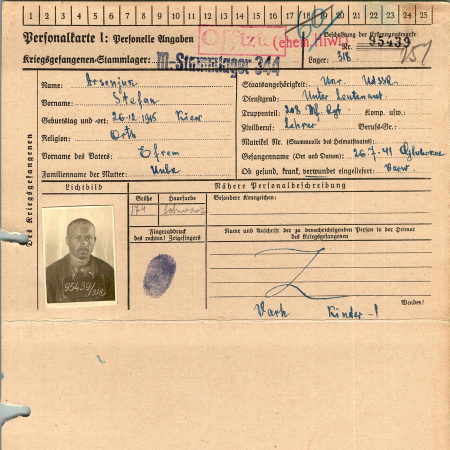 1 2 3 4 5 6 7 8 9 10 11 12 13 14 15 16 17 18 19 20 21 22 23 24 25
Personalkarte I: Personelle Angaben
Kriegsgefangenen-Stammlager:
M-Stammlager 344
Offizier
(ehem. Hiwi)
Beschriftung der Erkennungsmarke
Nr. 95439
Lager: 318
Des Kriegsgefangenen
Name: Arsenjuk
Vorname: Stefan
Geburtstag und -ort: 26.12.1915 Kiew
Religion: Orth
Vorname des Vaters: Efrem
Familienname der Mutter:
Staatsangehörigkeit: Ukr. UdSSR
Dienstgrad: Unter Leutenant
Truppenteil: 208 Inf. Rgt. Komp. usw.:
Zivilberuf: Lehrer Berufs-Gr.:
Matrikel Nr. (Stammrolle des Heimatstaates):
Gefangennahme (Ort und Datum): 26.7.41
Ob gesund, krank, verwundet eingeliefert:
Lichtbild
Nähere Personalbeschreibung
Größe
174
Haarfarbe
schwarz
Besondere Kennzeichen:
Fingerabdruck
des rechten! Zeigefingers
Name und Anschrift der zu benachrichtigenden Person in der Heimat
des Kriegsgefangenen
95439/318
Wenden!
Kinder -1